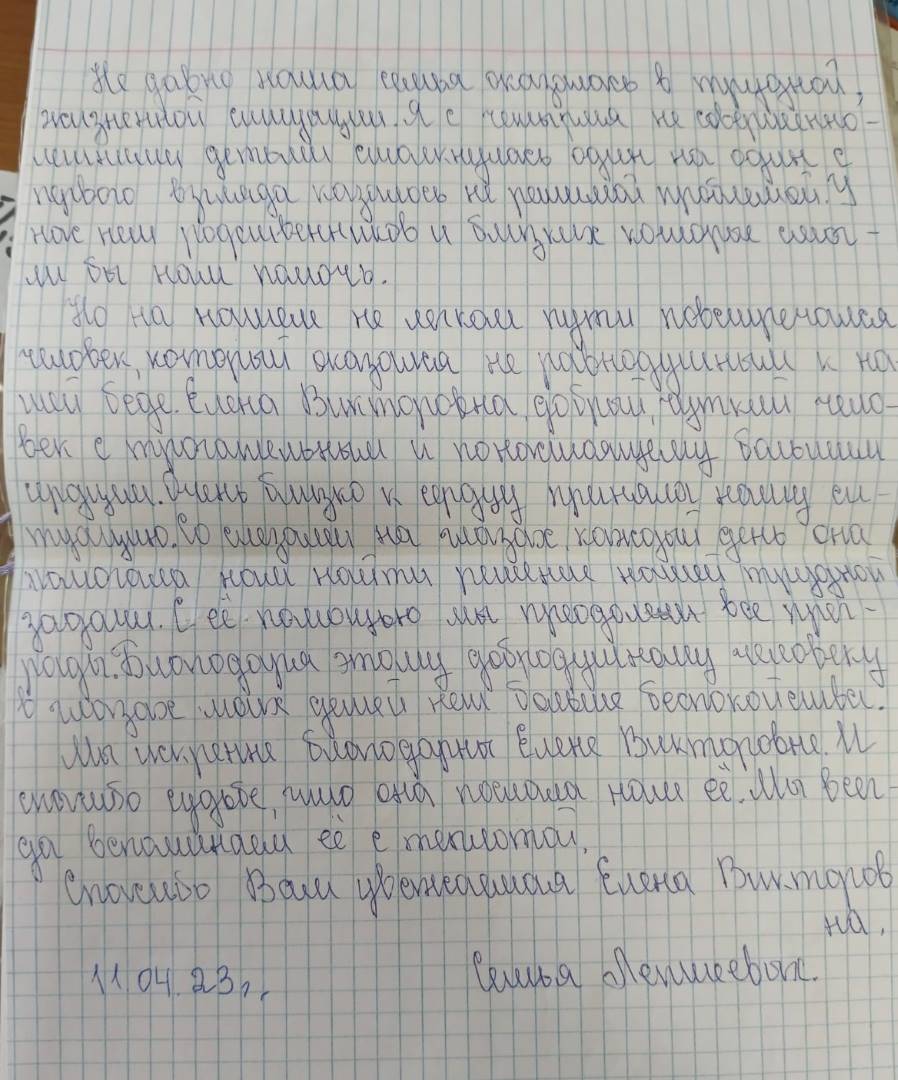 Не давно наша семья оказалась в трудной,
жизненной ситуации. Я с четырмя не совершенно-
летними детьми столкнулась один на один с
первого взгляда казалось не решимой проблемой. У
нас нет родственников и близких которые смог-
ли бы нам помочь.
Но на нашем не легком пути повстречался
человек, который оказался не равнодушным к на-
шей беде. Елена Викторовна, добрый, чуткий чело-
век с трогательным и понастоящему большим
сердцем. Очень близко к сердцу приняла нашу си-
туацию. Со слезами на глазах, каждый день она
помогала нам найти решение нашей трудной
задачи. С её помощью мы преодолели все прег-
рады. Благодаря этому добродушному человеку
в глазах моих детей нет больше беспокойства.
Мы искренне благодарны Елене Викторовне. И
спасибо судьбе, что она послала нам её. Мы всег-
да вспоминаем её с теплотой.
Спасибо Вам уважаемая Елена Викторов
на.
11.04.23г. Семья